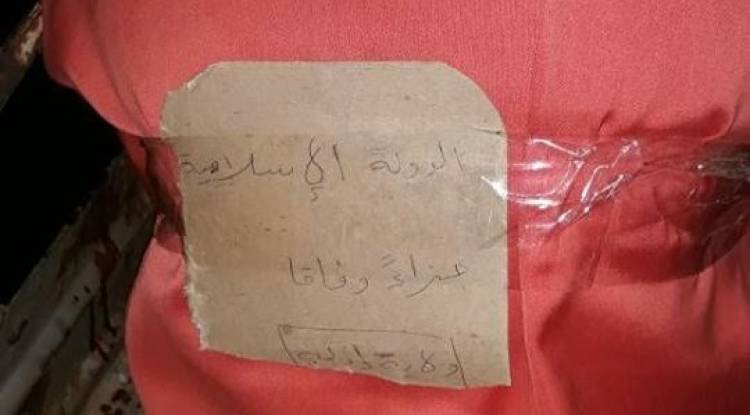 الدولة الإسلامية
جزاءً وفاقا
ولاية